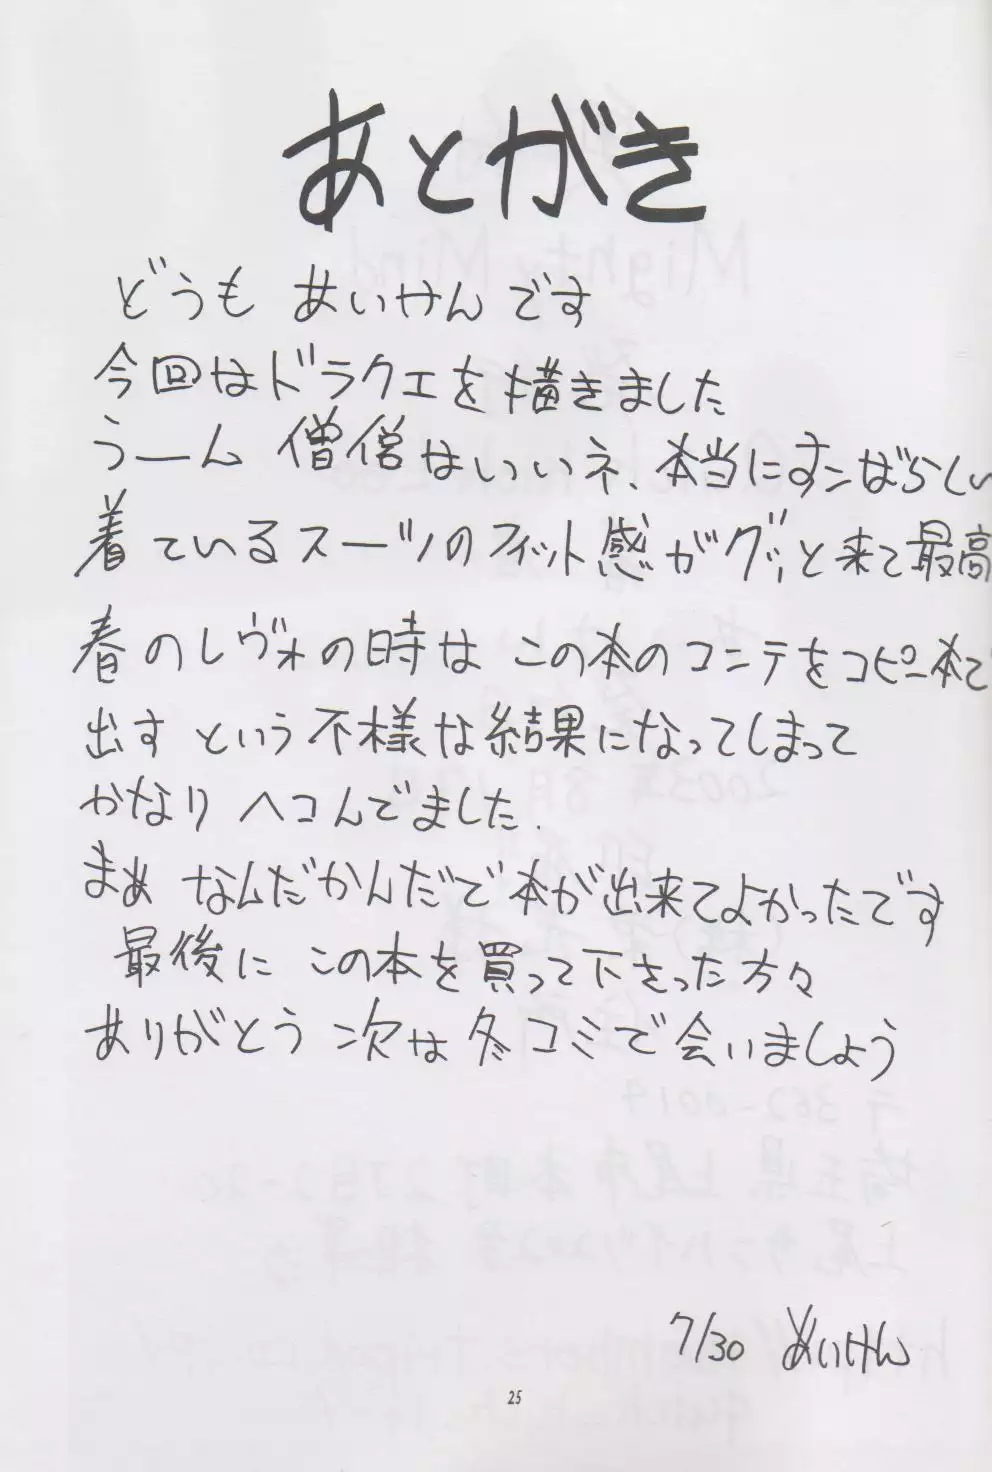 あとがき
どうも あいけんです
今回はドラクエを描きました
うーん 僧侶はいいネ、本当にすンばらしい
着ているスーツのフィット感がグッと来て最高
春のレヴォの時は この本のコンテをコピー本で
出す という不様な結果になってしまって
かなり ヘコんでました.
まあ なんだかんだで本が出来てよかったです
最後に この本を買って下さった方々
ありがとう 次は冬コミで会いましょう
7/30 あいけん
25